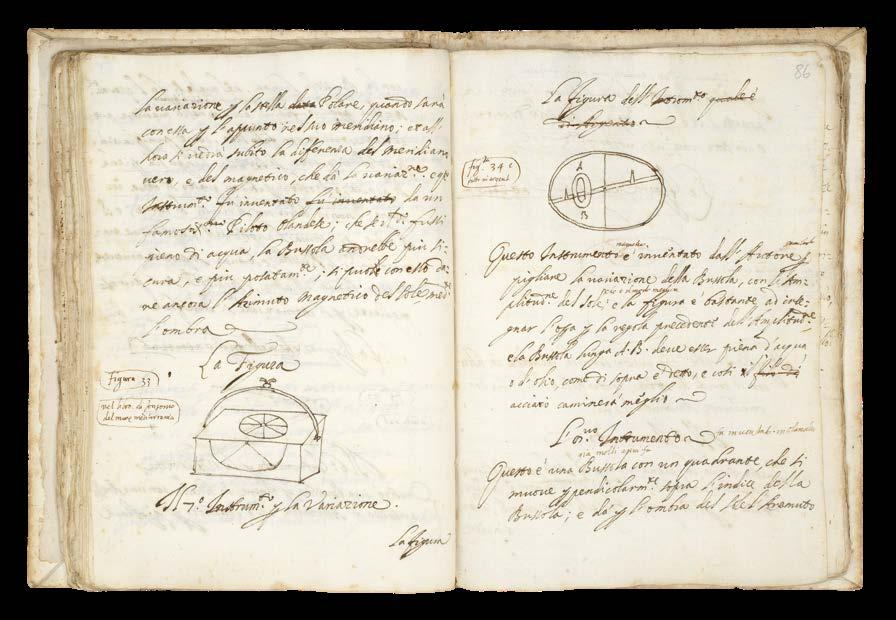 la variazione p la stella data Polare, quando sarà
con essa p l'appunto nel suo meridiano; et all-
hora si vedrà subito la differenza del meridiano
vero, e del magnetico, che dà la variaz.ne e q.o
Instrum.to fu inventato fu inventato da un
famosis.mo Piloto Olandese; che se il
pieno di acqua, la Bussola sarebbe più si-
cura, e più posatam.te; si puole con esso da-
re ancora l'Azimuto magnetico del Sole med.te
l'ombra
La Figura
Figura 33
nel libro
del mare mediterraneo
Il 7.o Instrum.to p la Variazione.
La figura
86
La Figura dell' Instrom.to quale è
Fig.ra 34
Questo Instrumento è inventato dall' Autore p
pigliare la variazione della Bussola, con l'Am-
plitud.ne del Sole; e la figura è bastante ad inse-
gnar l'uso p la regola precedente dell' Amplitud.ne
e la Bussola lunga A.B. deve esser piena d'acqua
o d'olio, come di sopra è detto, e così
acciaro caminerà meglio
L'8.vo Instrumento
Questo è una Bussola con un quadrante, che si
muove ppendicolarm.te sopra l'indice della
Bussola; e dà p l'ombra del Sole
A
B